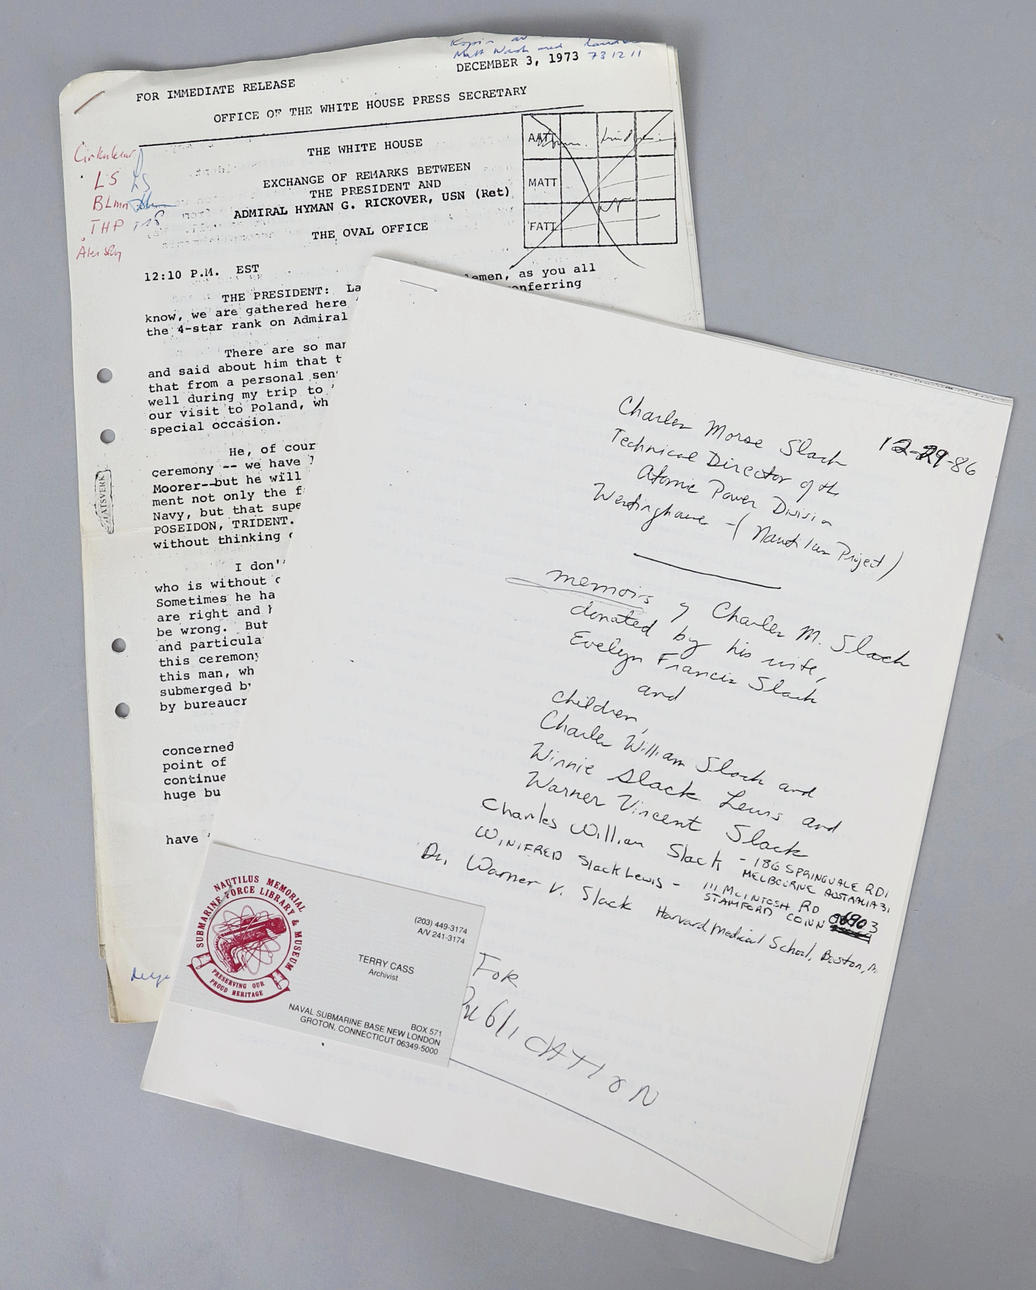 DECEMBER 3, 1973 731211
FOR IMMEDIATE RELEASE
OFFICE OF THE WHITE HOUSE PRESS SECRETARY
THE WHITE HOUSE
EXCHANGE OF REMARKS BETWEEN
THE PRESIDENT AND
ADMIRAL HYMAN G. RICKOVER, USN (Ret)
THE OVAL OFFICE
LS
BLmn
THP
MATT
12:10 P.M. EST
THE PRESIDENT: La
emen, as you all
know, we are gathered here
onferring
the 4-star rank on Admiral
There are so mar
and said about him that t
that from a personal sen
well during my trip to
our visit to Poland, wh
special occasion.
He, of cour
ceremony -- we have
Moorer--but he will
ment not only the f
Navy, but that supe
POSEIDON, TRIDENT.
without thinking
I don'
who is without
Sometimes he ha
are right and
be wrong. But
and particula
this ceremony
this man, wh
submerged b
by bureaucr
concerned
point of
continue
huge bu
have
12-29-86
Charles Morse Slack
Technical Director of the
Atomic Power Division
Westinghouse - (Nautilus Project)
memoirs of Charles M. Slack
donated by his wife,
Evelyn Francis Slack
and
children,
Charles William Slack and
Winnie Slack Lewis and
Warner Vincent Slack
Charles William Slack - 186 SPRINGVALE RD,
MELBOURNE AUSTRALIA 31
WINIFRED Slack Lewis - 111 McINTOSH RD
STAMFORD CONN 06903
Dr. Warner V. Slack Harvard Medical School, Boston,
FOR
PUBLICATION
NAUTILUS MEMORIAL
SUBMARINE FORCE LIBRARY & MUSEUM
PRESERVING OUR
PROUD HERITAGE
(203) 449-3174
A/V 241-3174
TERRY CASS
Archivist
BOX 571
NAVAL SUBMARINE BASE NEW LONDON
GROTON, CONNECTICUT 06349-5000